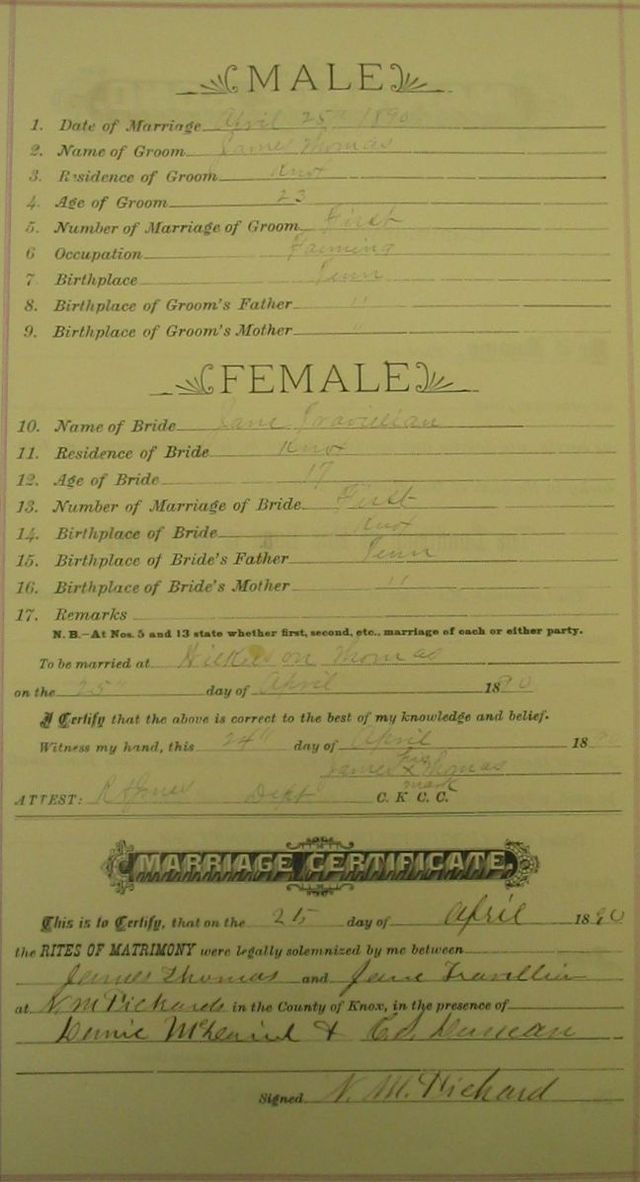 MALE
1. Date of Marriage April 25" 1890
2. Name of Groom James Thomas
3. Residence of Groom Knox
4. Age of Groom 23
5. Number of Marriage of Groom First
6 Occupation Farming
7 Birthplace Tenn
8. Birthplace of Groom's Father "
9. Birthplace of Groom's Mother "
FEMALE
10. Name of Bride Jane
11. Residence of Bride Knox
12. Age of Bride 17
13. Number of Marriage of Bride First
14. Birthplace of Bride Knox
15. Birthplace of Bride's Father Tenn
16. Birthplace of Bride's Mother "
17. Remarks
N. B.—At Nos. 5 and 13 state whether first, second, etc., marriage of each or either party.
To be married at Thomas
on the 25" day of April 1890
I Certify that the above is correct to the best of my knowledge and belief.
Witness my hand, this 24" day of April 18
James Thomas
mark
ATTEST: Dept C. K. C. C.
MARRIAGE CERTIFICATE.
This is to Certify, that on the 25 day of April 1890
the RITES OF MATRIMONY were legally solemnized by me between
James Thomas and Jane
at N. M. Pickards in the County of Knox, in the presence of
&
Signed N. M. Pickard